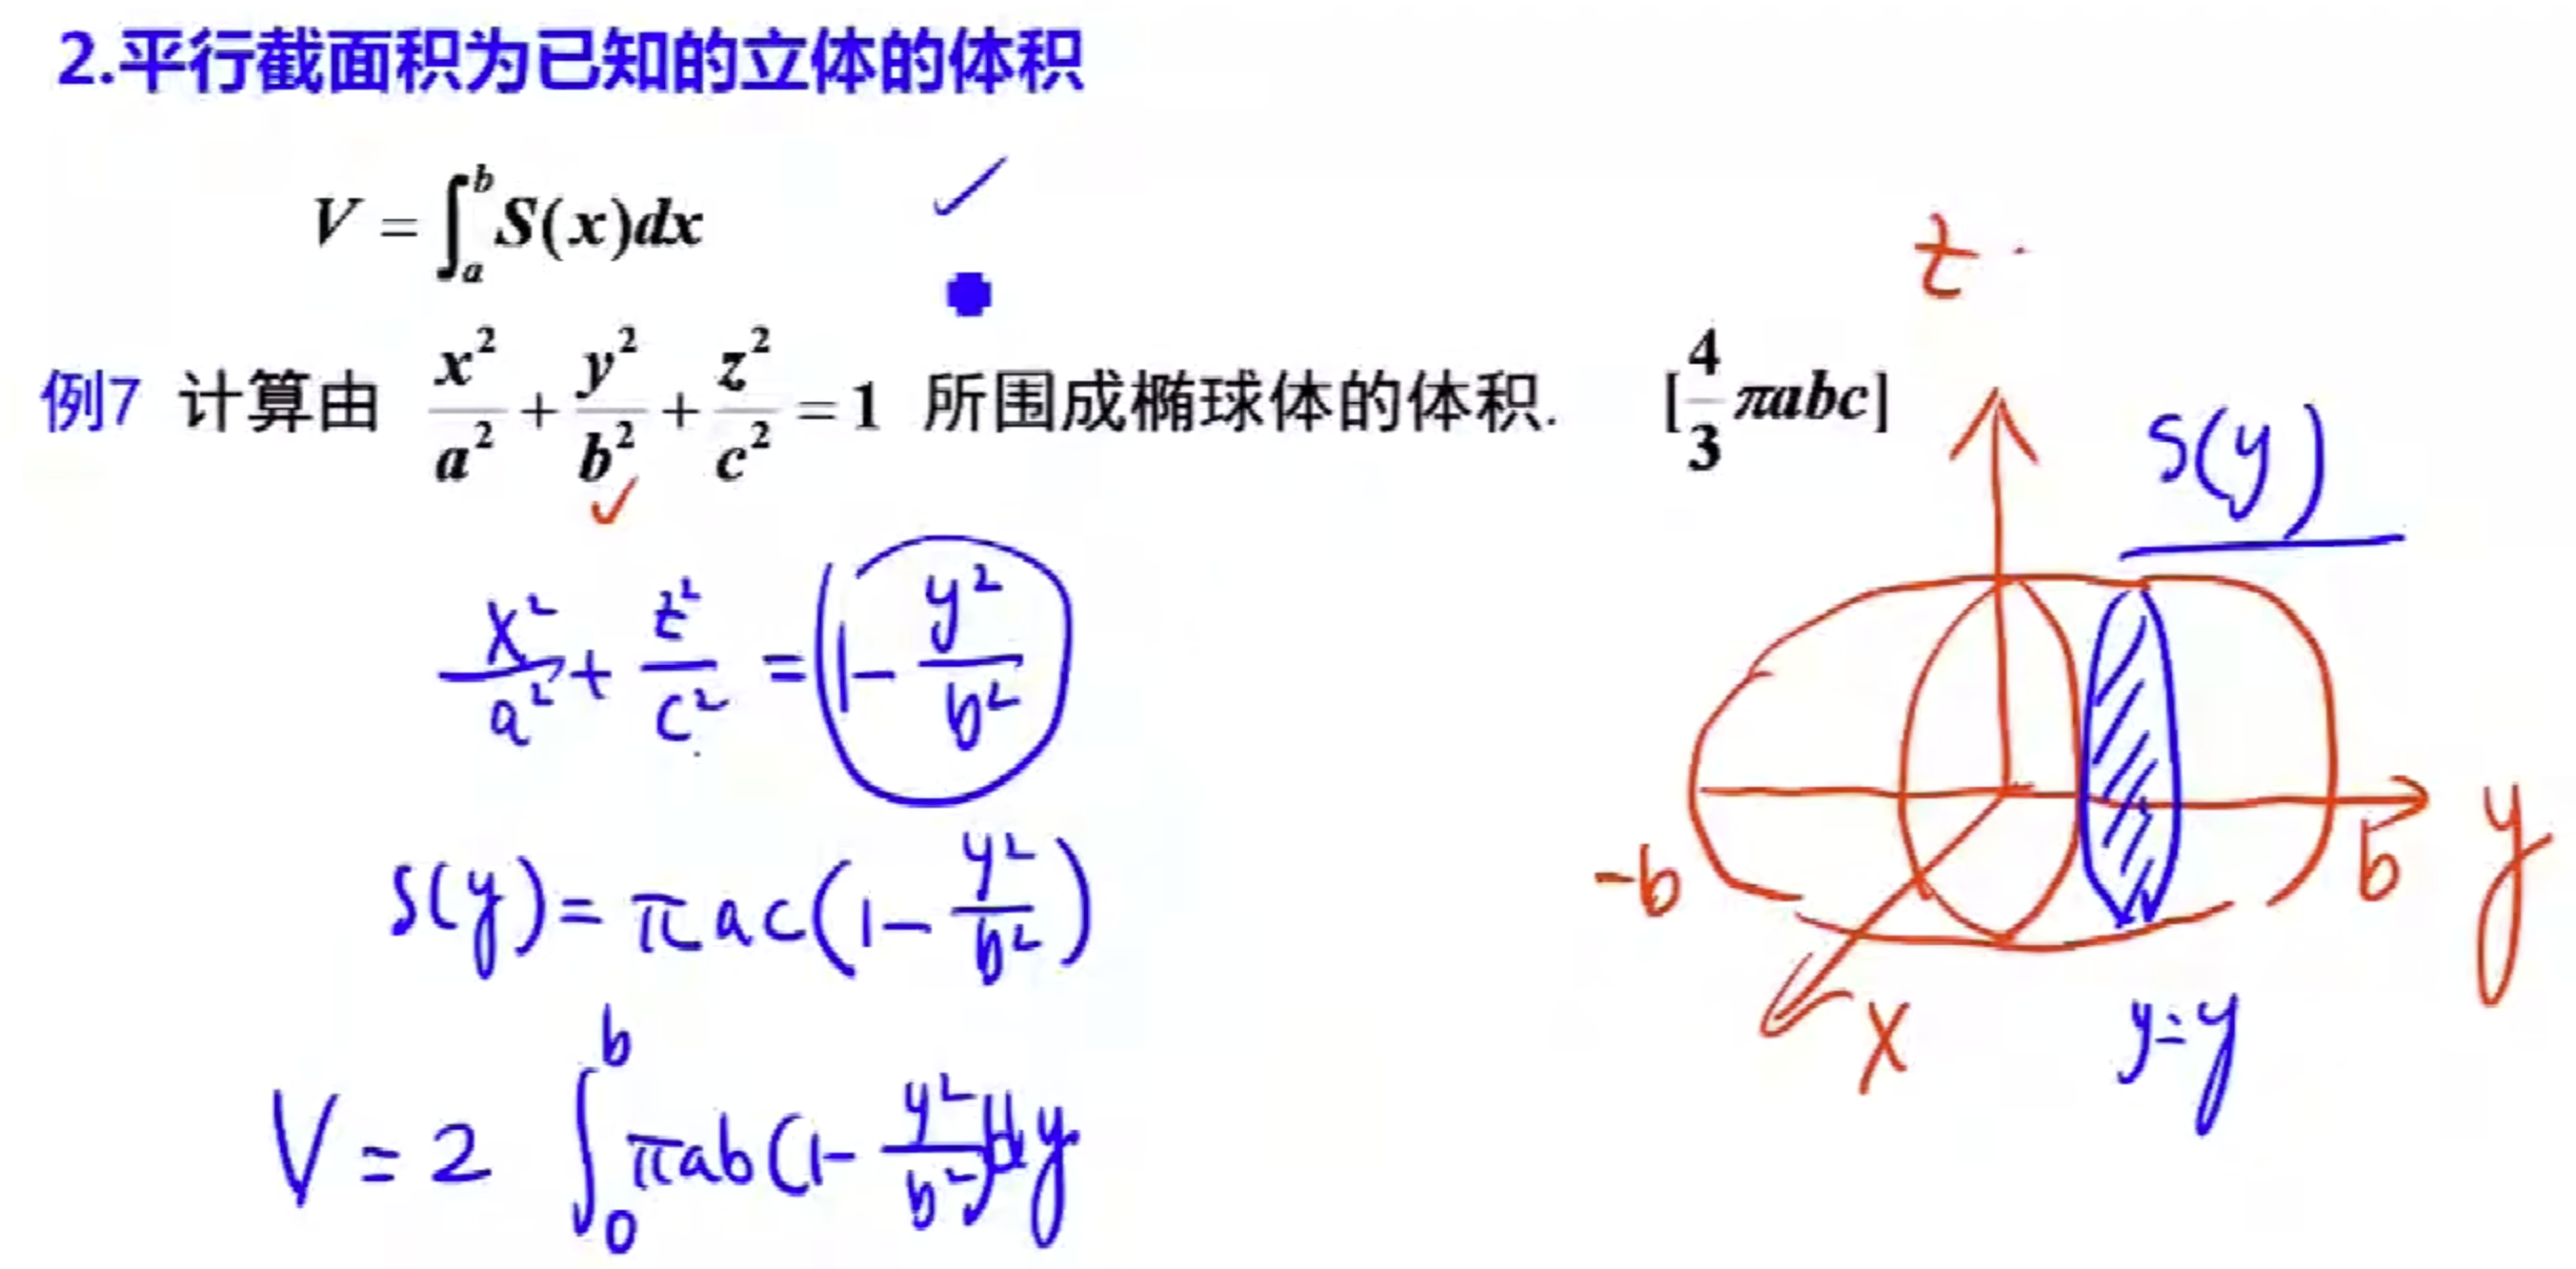 2.平行截面积为已知的立体的体积
V = ∫_a^b S(x)dx
例7 计算由 x²/a² + y²/b² + z²/c² = 1 所围成椭球体的体积. [4/3 πabc]
x²/a² + z²/c² = 1 - y²/b²
S(y) = π a c (1 - y²/b²)
V = 2 ∫_0^b πab (1 - y²/b²) dy
z
S(y)
-b
b
y
x
y=y